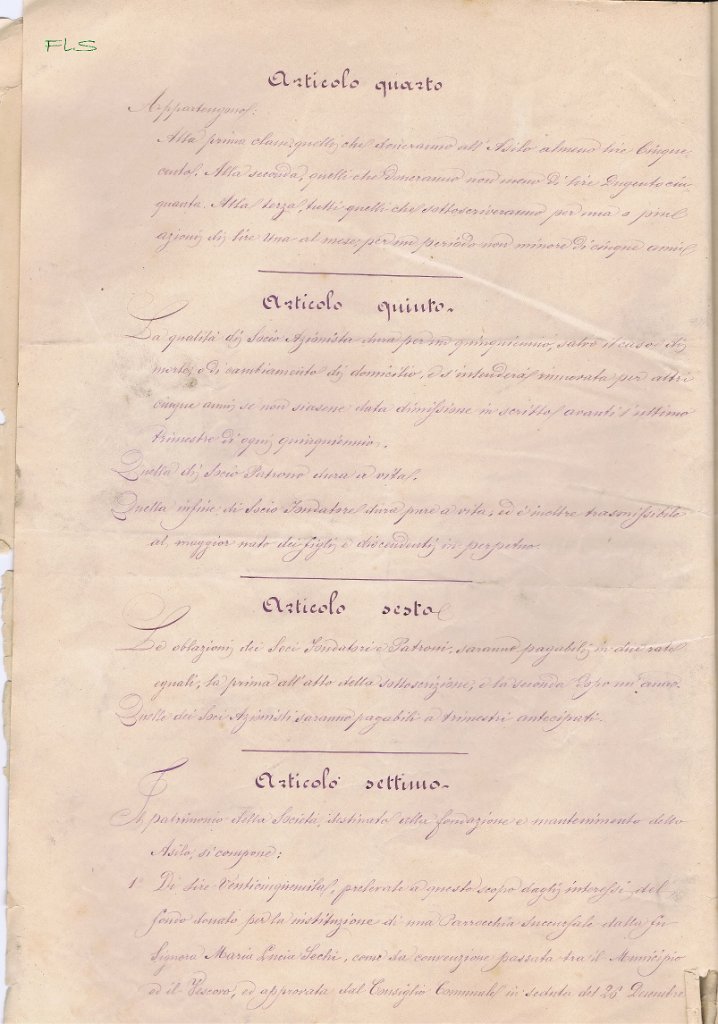 FLS
Articolo quarto
Appartengono:
Alla prima classe, quelli che doneranno all'Asilo almeno lire Cinque-
cento. Alla seconda, quelli che doneranno non meno di lire Dugento cin-
quanta. Alla terza, tutti quelli che sottoscriveranno per una o più
azioni di lire Una al mese, per un periodo non minore di cinque anni.
Articolo quinto.
La qualità di Socio Azionista dura per un quinquennio, salvo il caso di
morte, o di cambiamento di domicilio, e s'intenderà rinnovata per altri
cinque anni, se non siasene data dimissione in scritto, avanti l'ultimo
trimestre di ogni quinquennio.
Quella di Socio Patrono dura a vita.
Quella infine di Socio Fondatore dura pure a vita, ed è inoltre trasmissibile
al maggior nato dei figli e discendenti in perpetuo.
Articolo sesto
Le oblazioni dei Soci Fondatori e Patroni, saranno pagabili in due rate
eguali, la prima all'atto della sottoscrizione, e la seconda dopo un anno.
Quelle dei Soci Azionisti saranno pagabili a trimestri antecipati.
Articolo settimo.
Il patrimonio della Società, destinato alla fondazione e mantenimento dello
Asilo, si compone:
1° Di lire Venticinquemila, prelevate a questo scopo dagli interessi del
fondo donato per la instituzione di una Parrocchia succursale dalla fu
Signora Maria Lucia Sechi, come da convenzione passata tra il Municipio
ed il Vescovo, ed approvata dal Consiglio Comunale in seduta del 26 Decembre